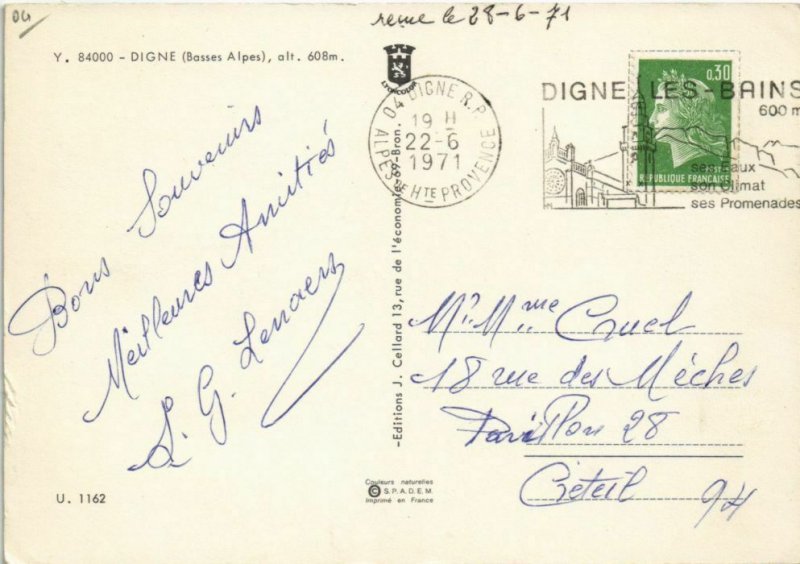 04
reçue le 28-6-71
Y. 84000 - DIGNE (Basses Alpes), alt. 608m.
LYONCOLOR
04 DIGNE R.P.
19 H
22-6
1971
ALPES DE HTE PROVENCE
0,30
POSTES
REPUBLIQUE FRANÇAISE
DIGNE LES-BAINS
600 m
ses Eaux
son Climat
ses Promenades
Bons Souvenirs
Meilleures Amitiés
G. Lenaers
-Editions J. Cellard 13, rue de l'économie-69-Bron.
Mr. Mme Cruel
18 rue des Mèches
Pavillon 28
Créteil 94
U. 1162
Couleurs naturelles
© S.P.A.D.E.M.
Imprimé en France